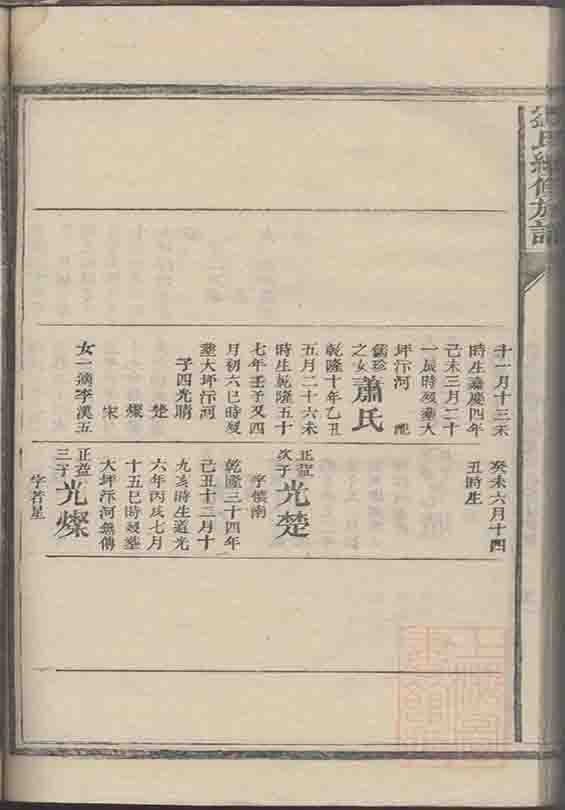 氏續修族譜
十一月十三未
時生嘉慶四年
己未三月二十
一辰時歿塟大
坪泝河
儒珍
之女
蕭氏
乾隆十年乙丑
五月二十六未
時生乾隆五十
七年壬子又四
月初六巳時歿
塟大坪泝河
子四光晴
楚
燦
宋
女一適李漢五
癸未六月十四
丑時生
正益
次子
光楚
字懷南
乾隆三十四年
己丑十二月十
九亥時生道光
六年丙戌七月
十五巳時歿塟
大坪泝河無傳
正益
三子
光燦
字若星